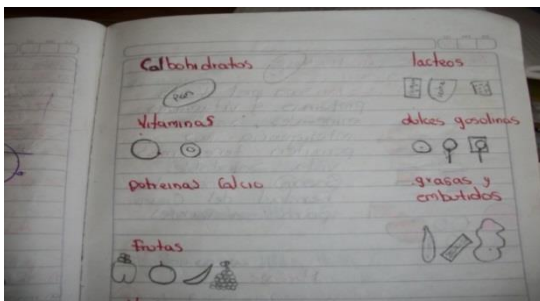 Calbohidratos
pan
Vitaminas
potreinas Calcio
frutas
lacteos
dulces gosolinas
grasas y
embutidos